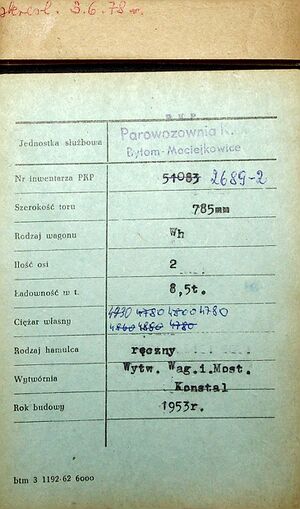 skreśl. 3.6.78 r.
PKP
Parowozownia K.
Bytom-Maciejkowice
Jednostka służbowa
Nr inwentarza PKP 51083 2689-2
Szerokość toru 785mm
Rodzaj wagonu Wh
Ilość osi 2
Ładowność w t. 8,5t.
4930 4780 4800 4780
Ciężar własny 4860 4880 4780
Rodzaj hamulca ręczny
Wytw. Wag.i.Most.
Wytwórnia Konstal
Rok budowy 1953r.
btm 3 1192-62 6000